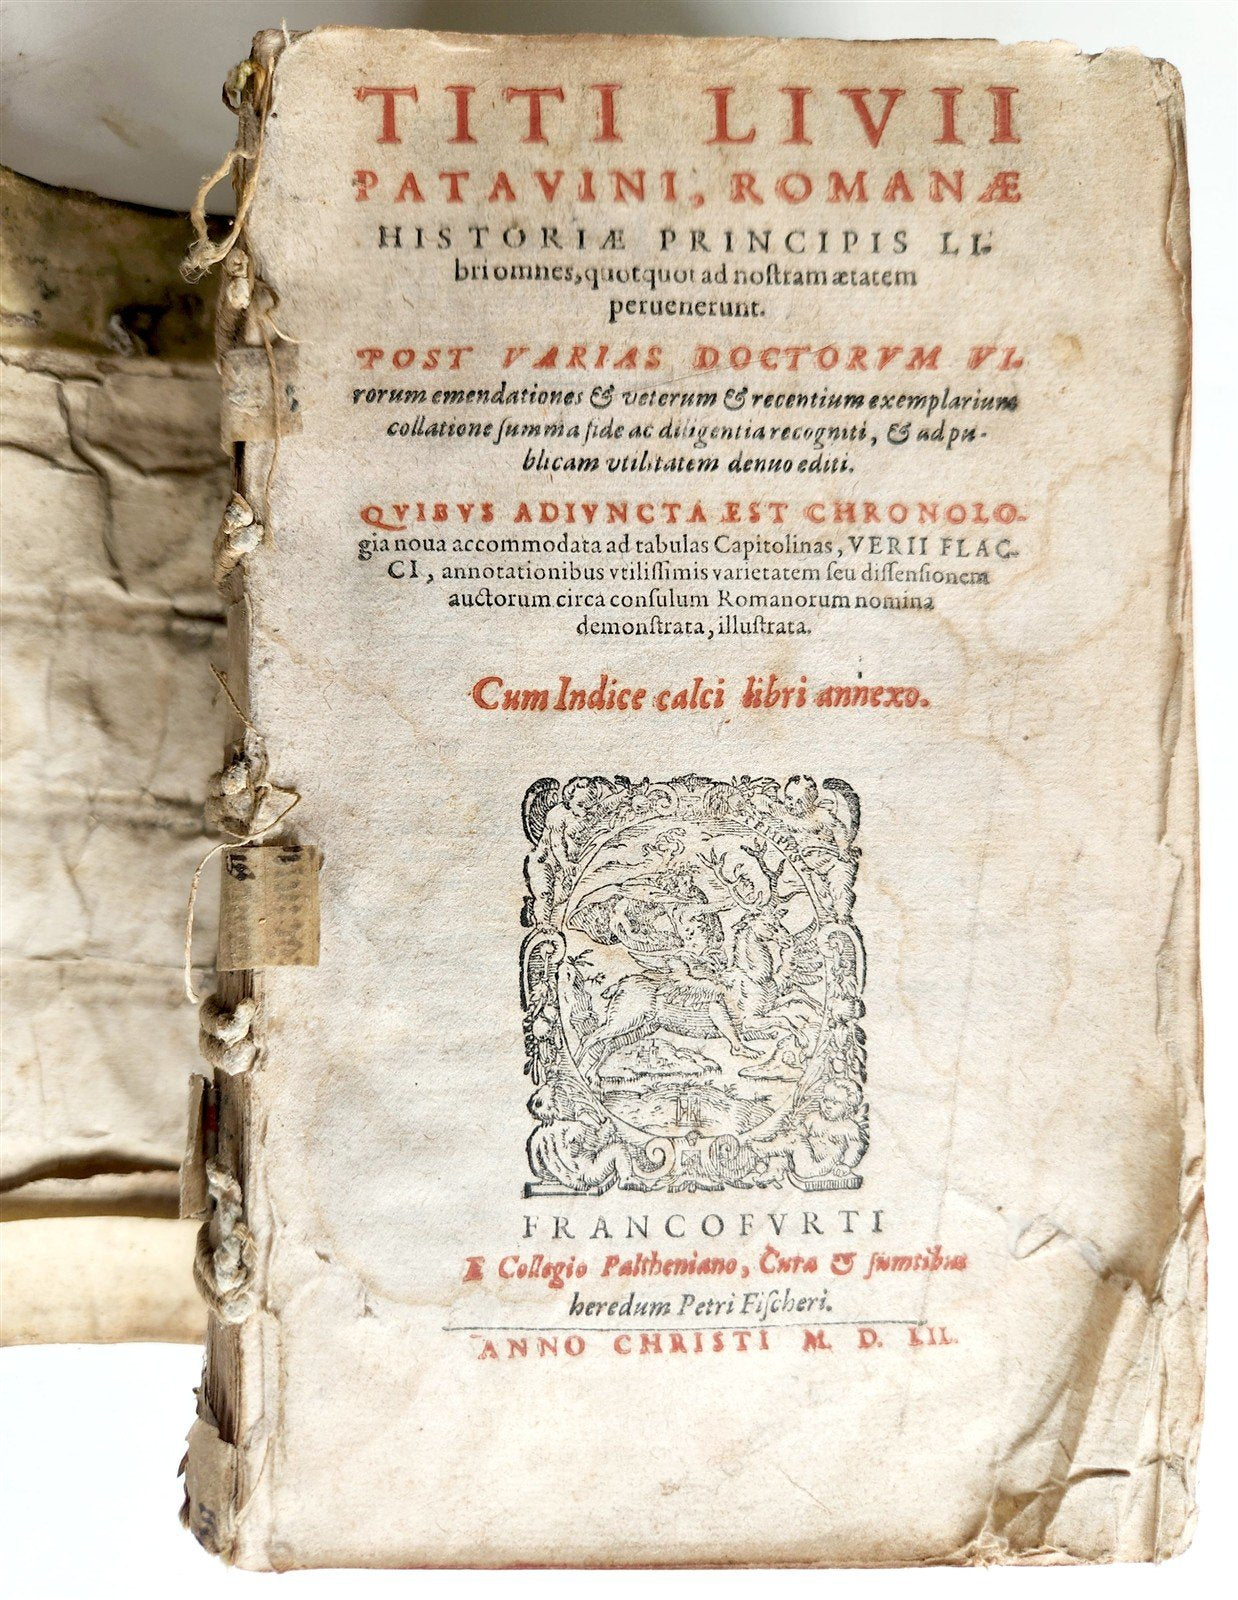 TITI LIVII
PATAVINI, ROMANÆ
HISTORIÆ PRINCIPIS LI-
bri omnes, quotquot ad noſtram ætatem
peruenerunt.
POST VARIAS DOCTORVM VI-
rorum emendationes & veterum & recentium exemplarium
collatione ſumma fide ac diligentia recogniti, & ad pu-
blicam vtilitatem denuo editi.
QVIBVS ADIVNCTA EST CHRONOLO-
gia noua accommodata ad tabulas Capitolinas, VERII FLAC-
CI, annotationibus vtiliſſimis varietatem ſeu diſſenſionem
auctorum circa conſulum Romanorum nomina
demonſtrata, illuſtrata.
Cum Indice calci libri annexo.
FRANCOFVRTI
E Collegio Paltheniano, Cura & ſumtibus
heredum Petri Fiſcheri.
ANNO CHRISTI M. D. LII.